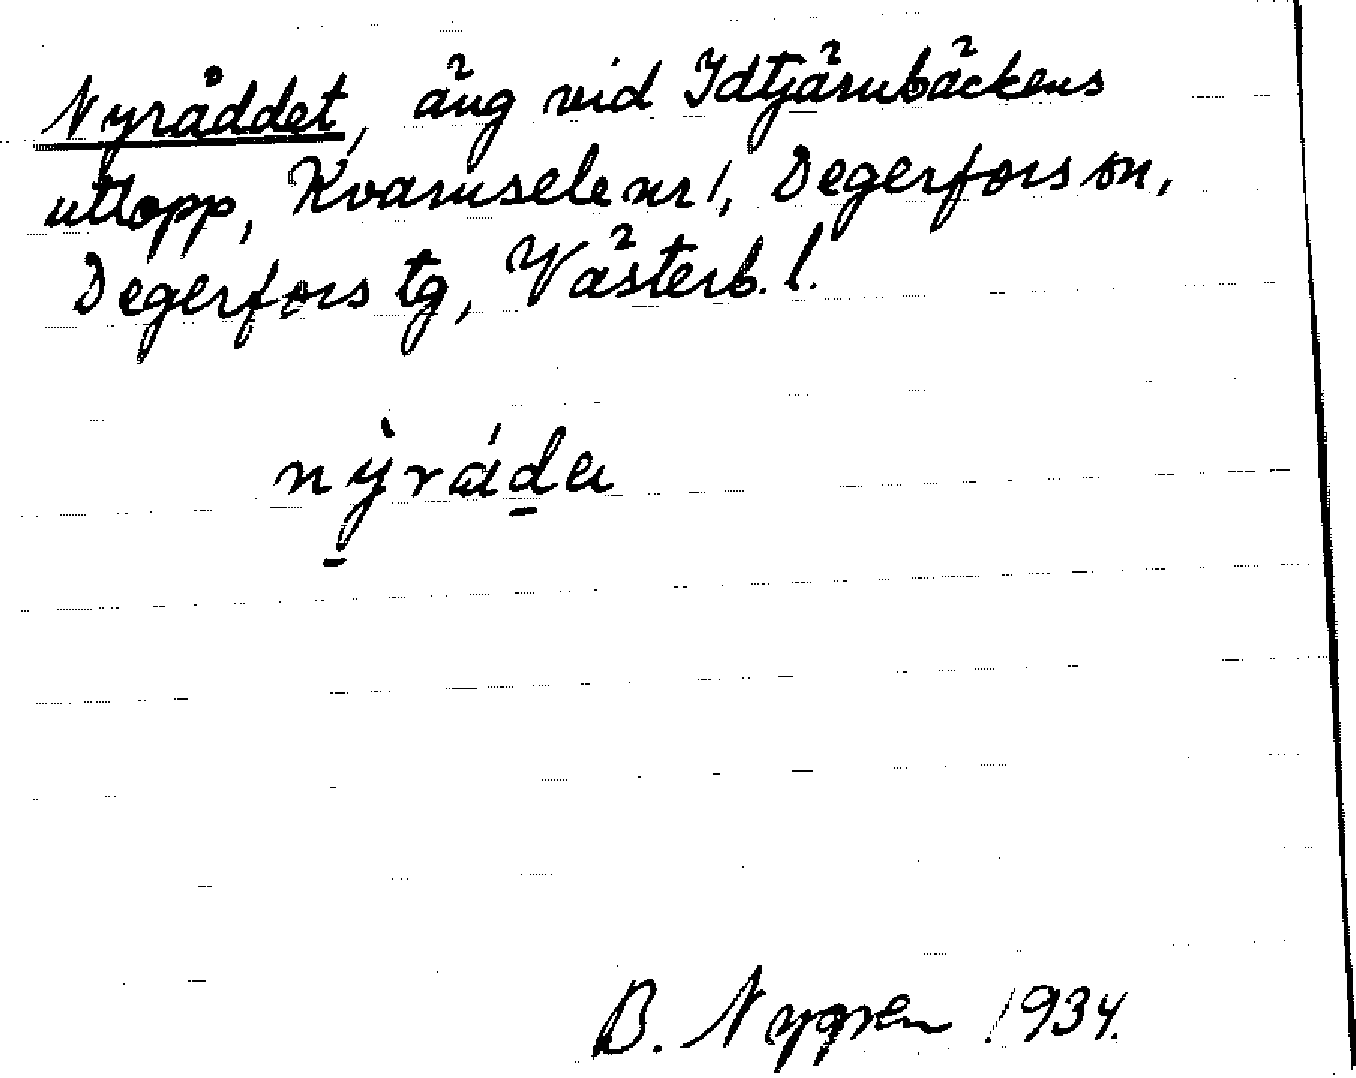 Nyråddet, äng vid Idtjärnbäckens
utlopp, Kvarnsele nr 1, Degerfors sn,
Degerfors tg, Västerb. l.
nỳrá̱da
B. Nygren 1934.